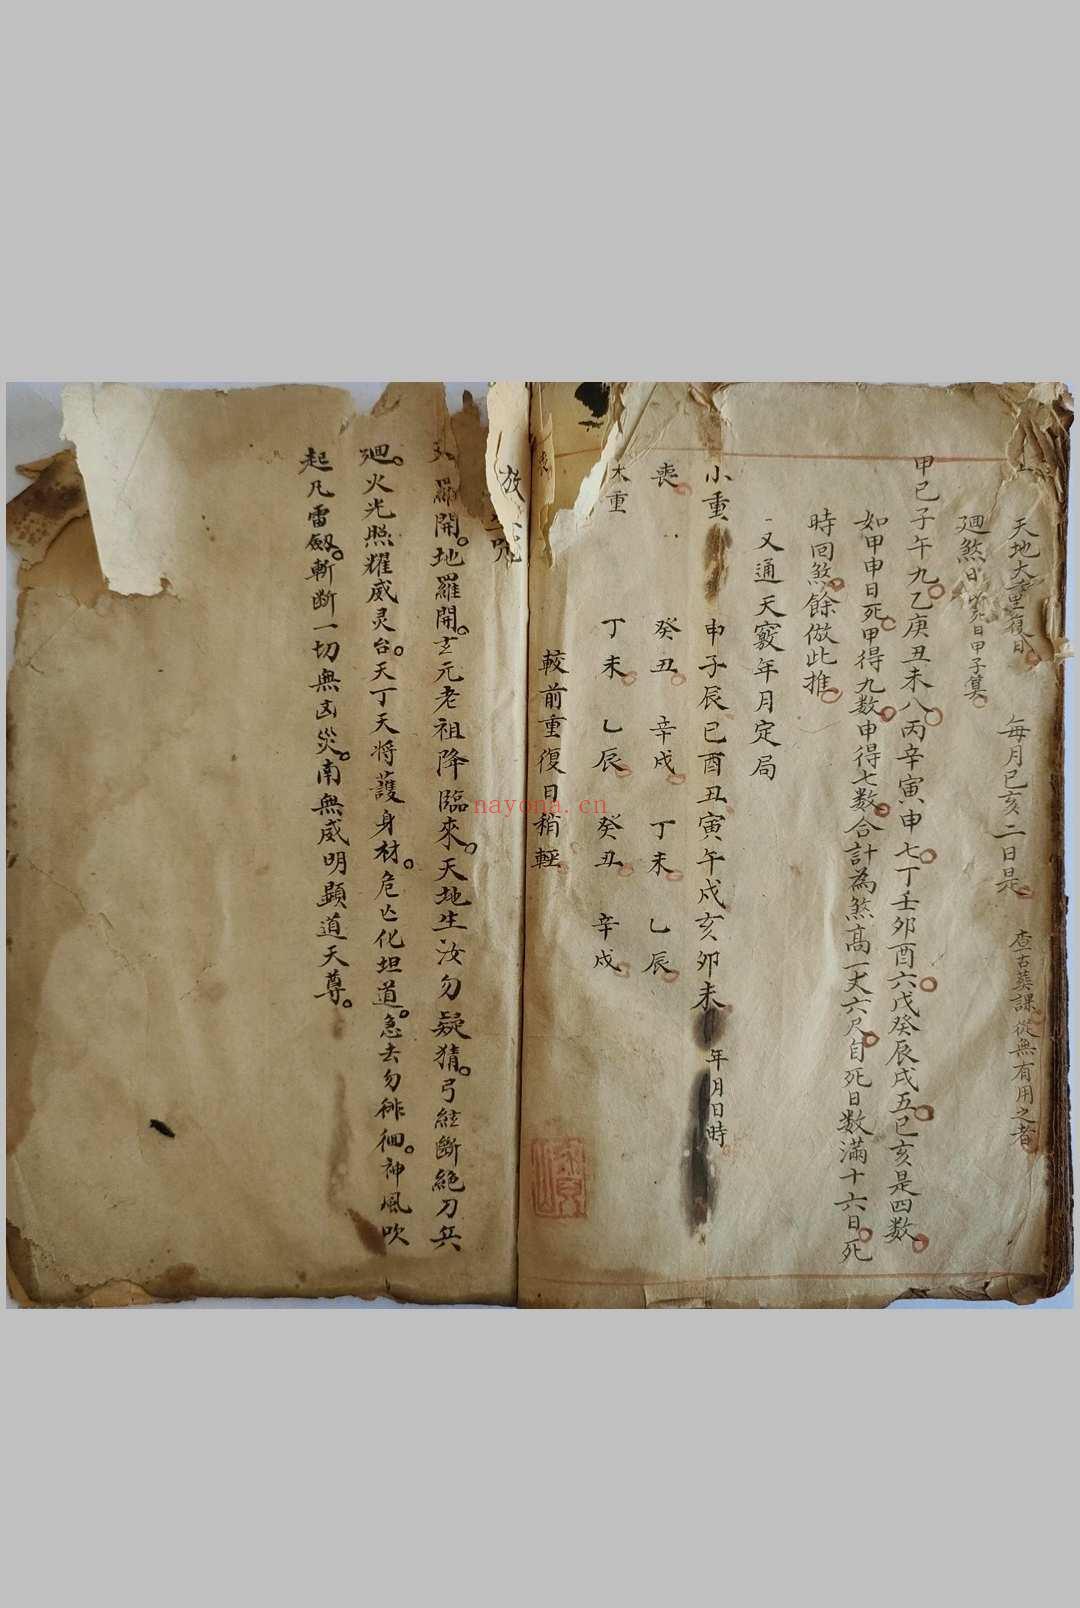 天地大重復日 每月巳亥二日是 查古葬課從無有用之者
廻煞日以死日甲子算
甲己子午九乙庚丑未八丙辛寅申七丁壬卯酉六戊癸辰戌五巳亥是四数
如甲申日死甲得九数申得七数合計為煞高一丈六尺自死日数滿十六日死
時回煞餘倣此推
又通天竅年月定局
小重 申子辰巳酉丑寅午戌亥卯未 年月日時
喪 癸丑 辛戌 丁未 乙辰
重 丁未 乙辰 癸丑 辛戌
較前重復日稍輕
放
咒
羅開地羅開玄元老祖降臨來天地生汝勿疑猜弓絃斷絕刀兵
廻火光照耀威灵台天丁天将護身材危亡化坦道急去勿徘徊神風吹
起凡雷劔斬斷一切無凶災南無威明顕道天尊
nayona.cn